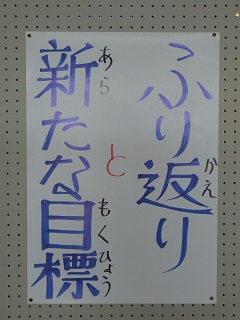 ふり返り
かえ
と
新たな目標
あら
もくひょう